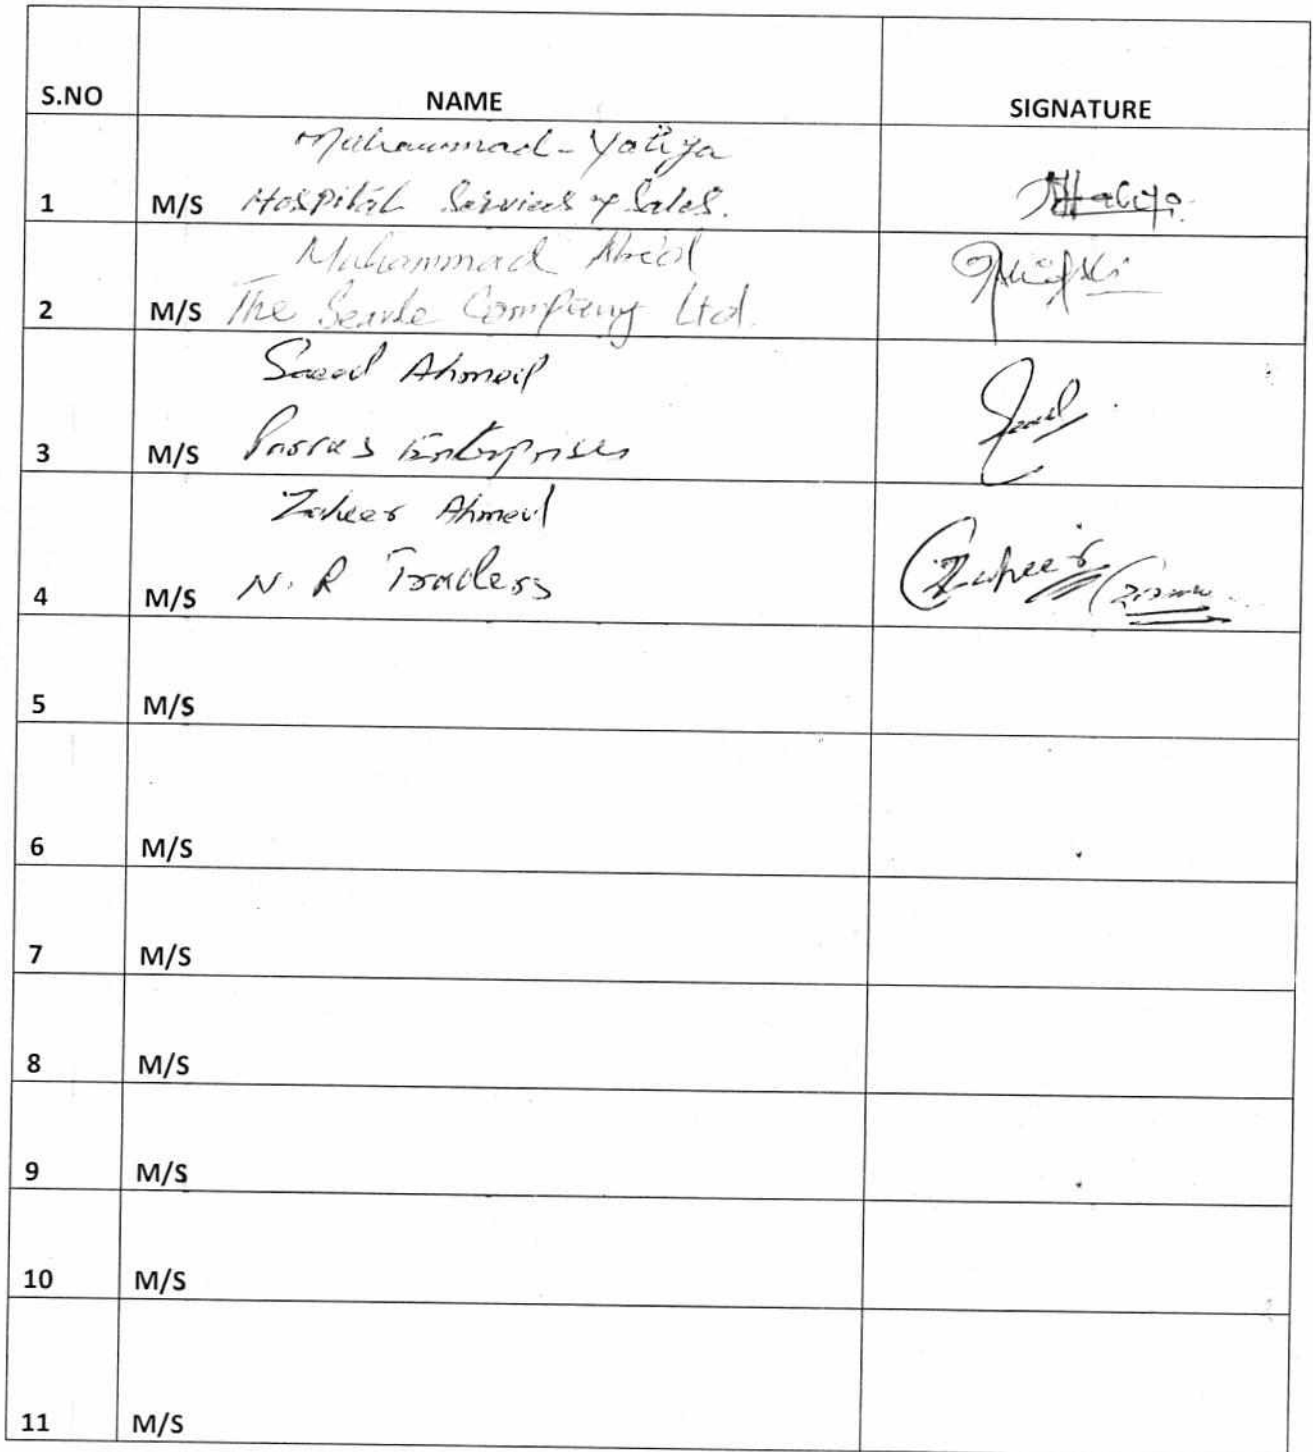 S.NO NAME SIGNATURE
Muhammad - Yahya
1 M/S Hospital Services & Sales.
Muhammad
2 M/S The Searle Company Ltd.
Saeed Ahmed
3 M/S Enterprises
Zaheer Ahmed
4 M/S N. R Traders Zaheer
5 M/S
6 M/S
7 M/S
8 M/S
9 M/S
10 M/S
11 M/S